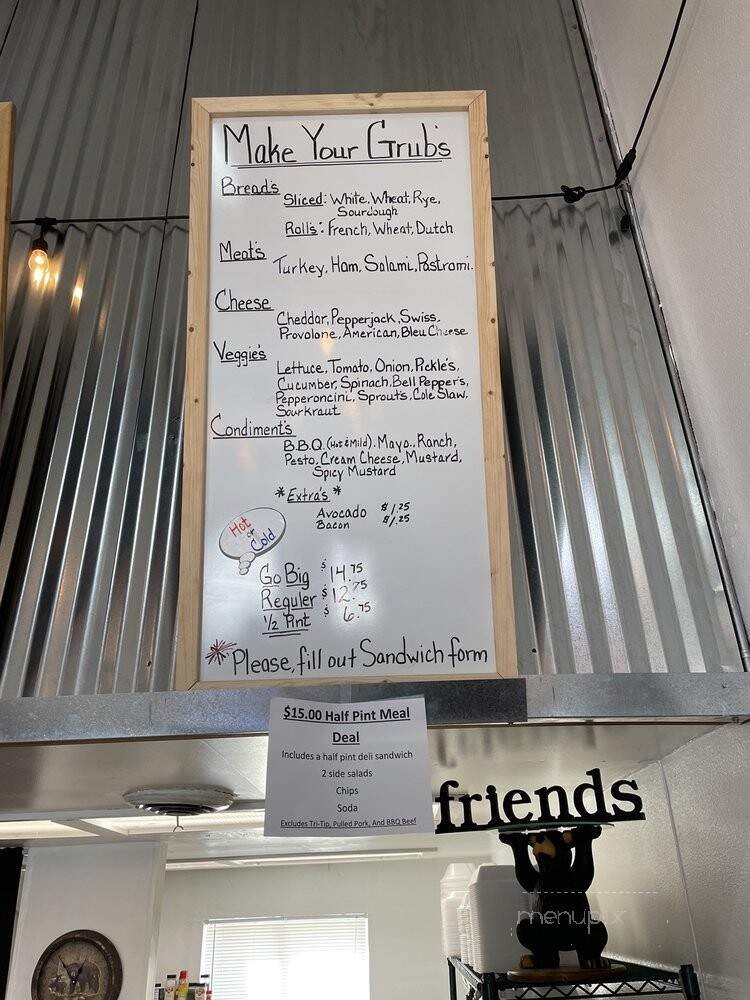 Make Your Grub's
Bread's
Sliced: White, Wheat, Rye,
Sourdough
Roll's: French, Wheat, Dutch
Meat's
Turkey, Ham, Salami, Pastrami.
Cheese
Cheddar, Pepperjack, Swiss,
Provolone, American, Bleu Cheese
Veggie's
Lettuce, Tomato, Onion, Pickle's,
Cucumber, Spinach, Bell Pepper's,
Pepperoncini, Sprout's, Cole Slaw,
Sourkraut
Condiment's
B.B.Q. (Hot & Mild), Mayo., Ranch,
Pesto, Cream Cheese, Mustard,
Spicy Mustard
*Extra's*
Avocado $1.25
Bacon $1.25
Hot
or
Cold
Go Big $14.75
Reguler $12.75
1/2 Pint $6.75
*Please, fill out Sandwich form
$15.00 Half Pint Meal
Deal
Includes a half pint deli sandwich
2 side salads
Chips
Soda
Excludes Tri-Tip, Pulled Pork, And BBQ Beef
friends
menupix